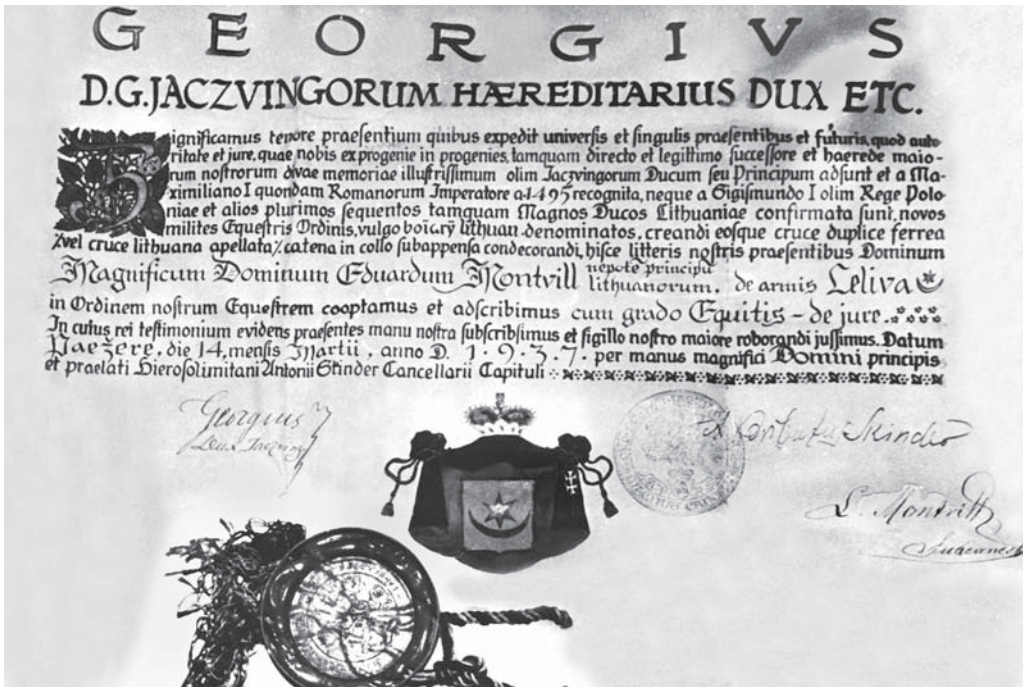 GEORGIVS
D.G.JACZVINGORUM HÆREDITARIUS DUX ETC.
Significamus tenore praesentium quibus expedit universis et singulis praesentibus et futuris, quod auto-
ritate et jure, quae nobis ex progenie in progenies, tamquam directo et legittimo successore et haerede maio-
rum nostrorum divae memoriae illustrissimum olim Jaczvingorum Ducum seu Principum adsunt et a Ma-
ximiliano I quondam Romanorum Imperatore a·1495 recognita, neque a Sigismundo I olim Rege Polo-
niae et alios plurimos sequentos tamquam Magnos Ducos Lithuaniae confirmata sunt, novos
milites Equestris Ordinis, vulgo boiary lithuan. denominatos, creandi eosque cruce duplice ferrea
/vel cruce lithuana apellata/ catena in collo subappensa condecorandi, hisce litteris nostris praesentibus Dominum
Magnificum Dominum Eduardum Montvill nepote principu lithuanorum, de armis Leliva
in Ordinem nostrum Equestrem cooptamus et adscribimus cum grado Equitis - de jure.
In cutus rei testimonium evidens praesentes manu nostra subscribsimus et sigillo nostro maiore roborandi jussimus. Datum
Paežere, die 14, mensis Martii, anno D. 1.9.3.7. per manus magnifici Domini principis
et praelati Hierosolimitani Antonii Skinder Cancellarii Capituli
Georgius
Dux
L. Montvill